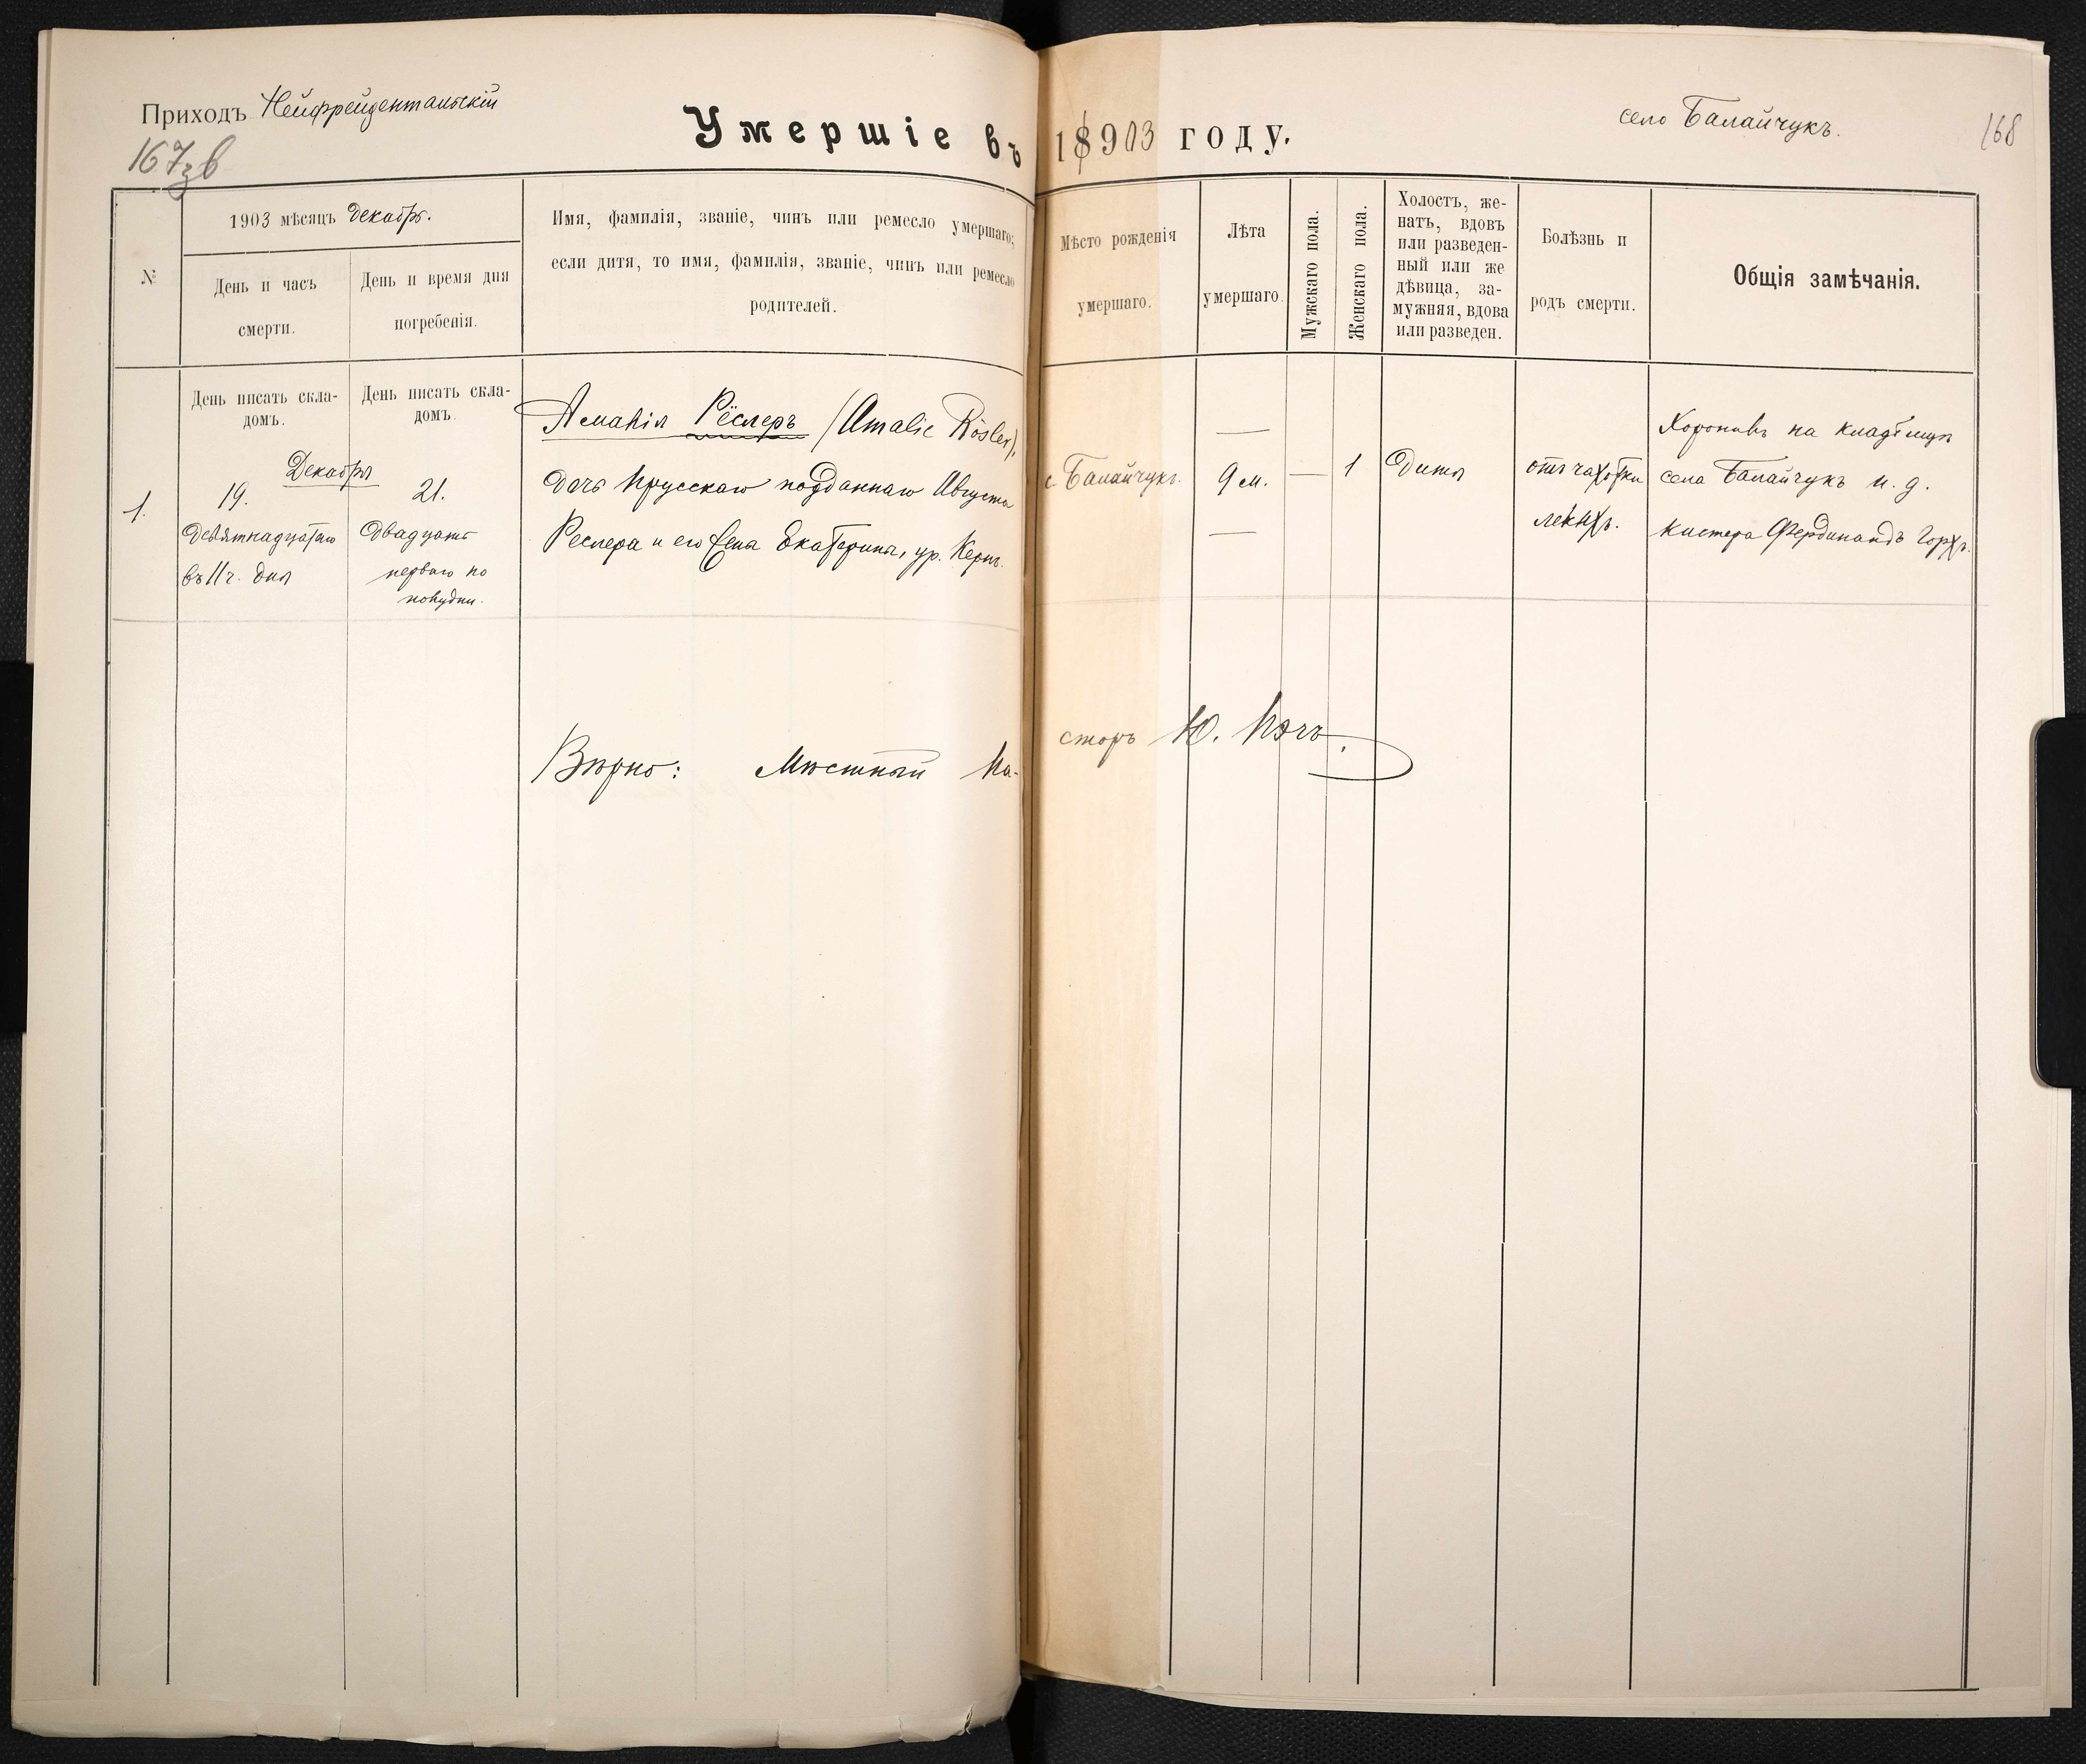 Приходъ Нейфрейдентальскій
167зв
Умершіе въ 18903 году.
село Балайчукъ.
168
№
1903 мѣсяцъ Декабрь.
День и часъ
смерти.
День и время дня
погребенія.
Имя, фамилія, званіе, чинъ или ремесло умершаго;
если дитя, то имя, фамилія, званіе, чинъ или ремесло
родителей.
Мѣсто рожденія
умершаго.
Лѣта
умершаго.
Мужскаго пола.
Женскаго пола.
Холостъ, же-
натъ, вдовъ
или разведен-
ный или же
дѣвица, за-
мужняя, вдова
или разведен.
Болѣзнь и
родъ смерти.
Общія замѣчанія.
День писать скла-
домъ.
День писать скла-
домъ.
1.
Декабря
19.
Девятнадцатаго
въ 11 ч. дня
21.
Двадцать
перваго по
полудни.
Амалія Рёслеръ (Amalie Rösler),
дочь Прусскаго подданнаго Августа
Реслера и его жены Екатерины, ур. Кернъ.
с. Балайчукъ.
—
9 м.
—
—
1
Дитя
отъ чахотки
легкихъ.
Хоронивъ на кладбищѣ
села Балайчукъ и. д.
кистера Фердинандъ Горхъ.
Вѣрно: Мѣстный Па-
сторъ Ю. Пэчъ.